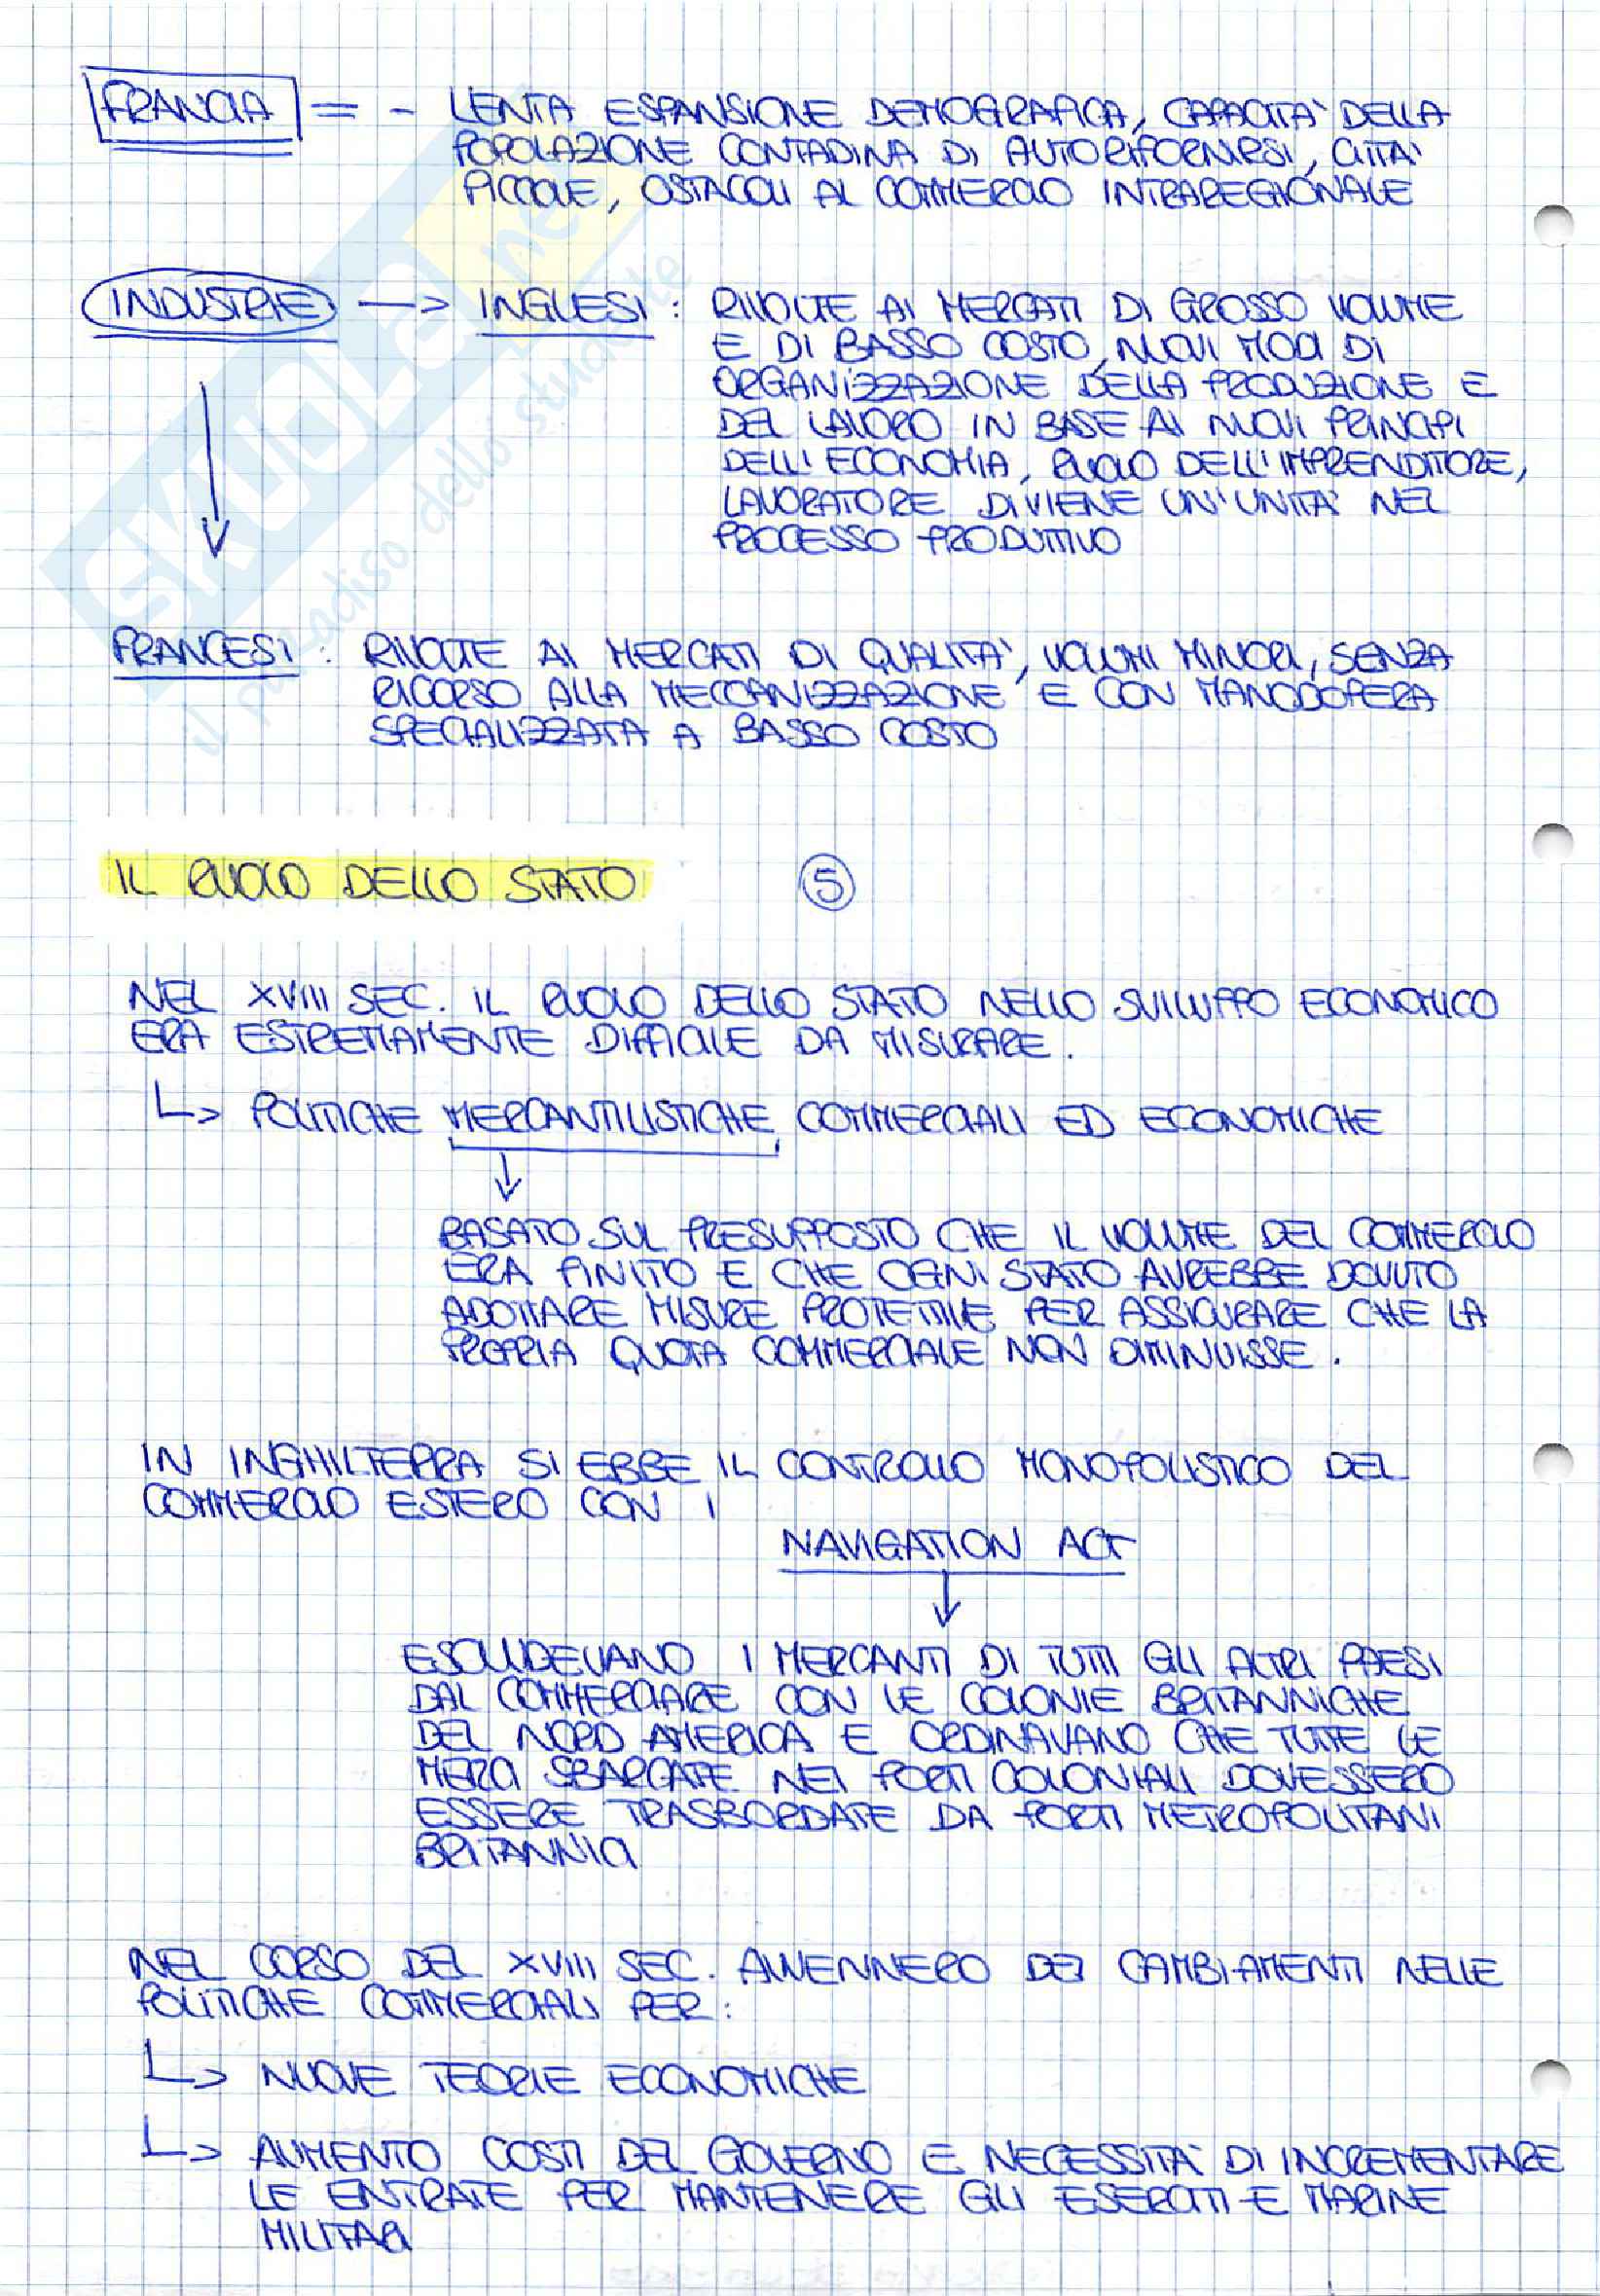 FRANCIA = - LENTA ESPANSIONE DEMOGRAFICA, CAPACITA' DELLA
POPOLAZIONE CONTADINA DI AUTORIFORNIRSI, CITTA'
PICCOLE, OSTACOLI AL COMMERCIO INTRAREGIONALE
INDUSTRIE -> INGLESI : RIVOLTE AI MERCATI DI GROSSO VOLUME
E DI BASSO COSTO, NUOVI MODI DI
ORGANIZZAZIONE DELLA PRODUZIONE E
DEL LAVORO IN BASE AI NUOVI PRINCIPI
DELL'ECONOMIA, RUOLO DELL'IMPRENDITORE,
LAVORATORE DIVIENE UN'UNITA' NEL
PROCESSO PRODUTTIVO
FRANCESI : RIVOLTE AI MERCATI DI QUALITA', VOLUMI MINORI, SENZA
RICORSO ALLA MECCANIZZAZIONE E CON MANODOPERA
SPECIALIZZATA A BASSO COSTO
IL RUOLO DELLO STATO 5
NEL XVIII SEC. IL RUOLO DELLO STATO NELLO SVILUPPO ECONOMICO
ERA ESTREMAMENTE DIFFICILE DA MISURARE.
-> POLITICHE MERCANTILISTICHE, COMMERCIALI ED ECONOMICHE
BASATO SUL PRESUPPOSTO CHE IL VOLUME DEL COMMERCIO
ERA FINITO E CHE OGNI STATO AVREBBE DOVUTO
ADOTTARE MISURE PROTETTIVE PER ASSICURARE CHE LA
PROPRIA QUOTA COMMERCIALE NON DIMINUISSE.
IN INGHILTERRA SI EBBE IL CONTROLLO MONOPOLISTICO DEL
COMMERCIO ESTERO CON I
NAVIGATION ACT
ESCLUDEVANO I MERCANTI DI TUTTI GLI ALTRI PAESI
DAL COMMERCIARE CON LE COLONIE BRITANNICHE
DEL NORD AMERICA E ORDINAVANO CHE TUTTE LE
MERCI SBARCATE NEI PORTI COLONIALI DOVESSERO
ESSERE TRASBORDATE DA PORTI METROPOLITANI
BRITANNICI
NEL CORSO DEL XVIII SEC. AVVENNERO DEI CAMBIAMENTI NELLE
POLITICHE COMMERCIALI PER:
-> NUOVE TEORIE ECONOMICHE
-> AUMENTO COSTI DEL GOVERNO E NECESSITA' DI INCREMENTARE
LE ENTRATE PER MANTENERE GLI ESERCITI E MARINE
MILITARI
SKUOLA.net
il paradiso dello studente